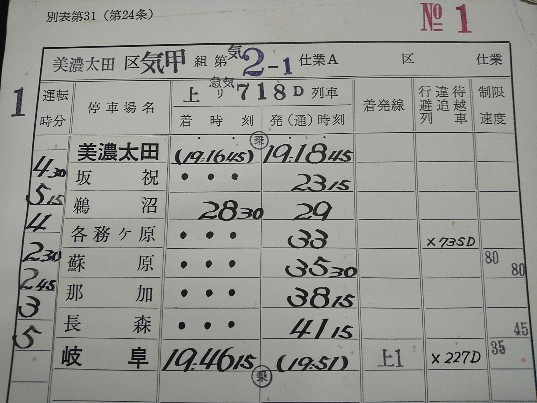 別表第31（第24条）
№ 1
美濃太田 区 気甲 組 第 気2-1 仕業A 区 仕業
1 運転時分 停車場名 上 急気リ 718D 列車 着発線 行違待避追越列車 制限速度
着時刻 発(通)時刻
乗
美濃太田 (19:1645) 19:1845
430 坂祝 ・・・ 2315
515 鵜沼 2830 29
4 各務ヶ原 ・・・ 33 ×735D
230 蘇原 ・・・ 3530 80 80
245 那加 ・・・ 3815
3 長森 ・・・ 4115 45
5 岐阜 19:4615 (19:51) 上1 ×227D 35
乗